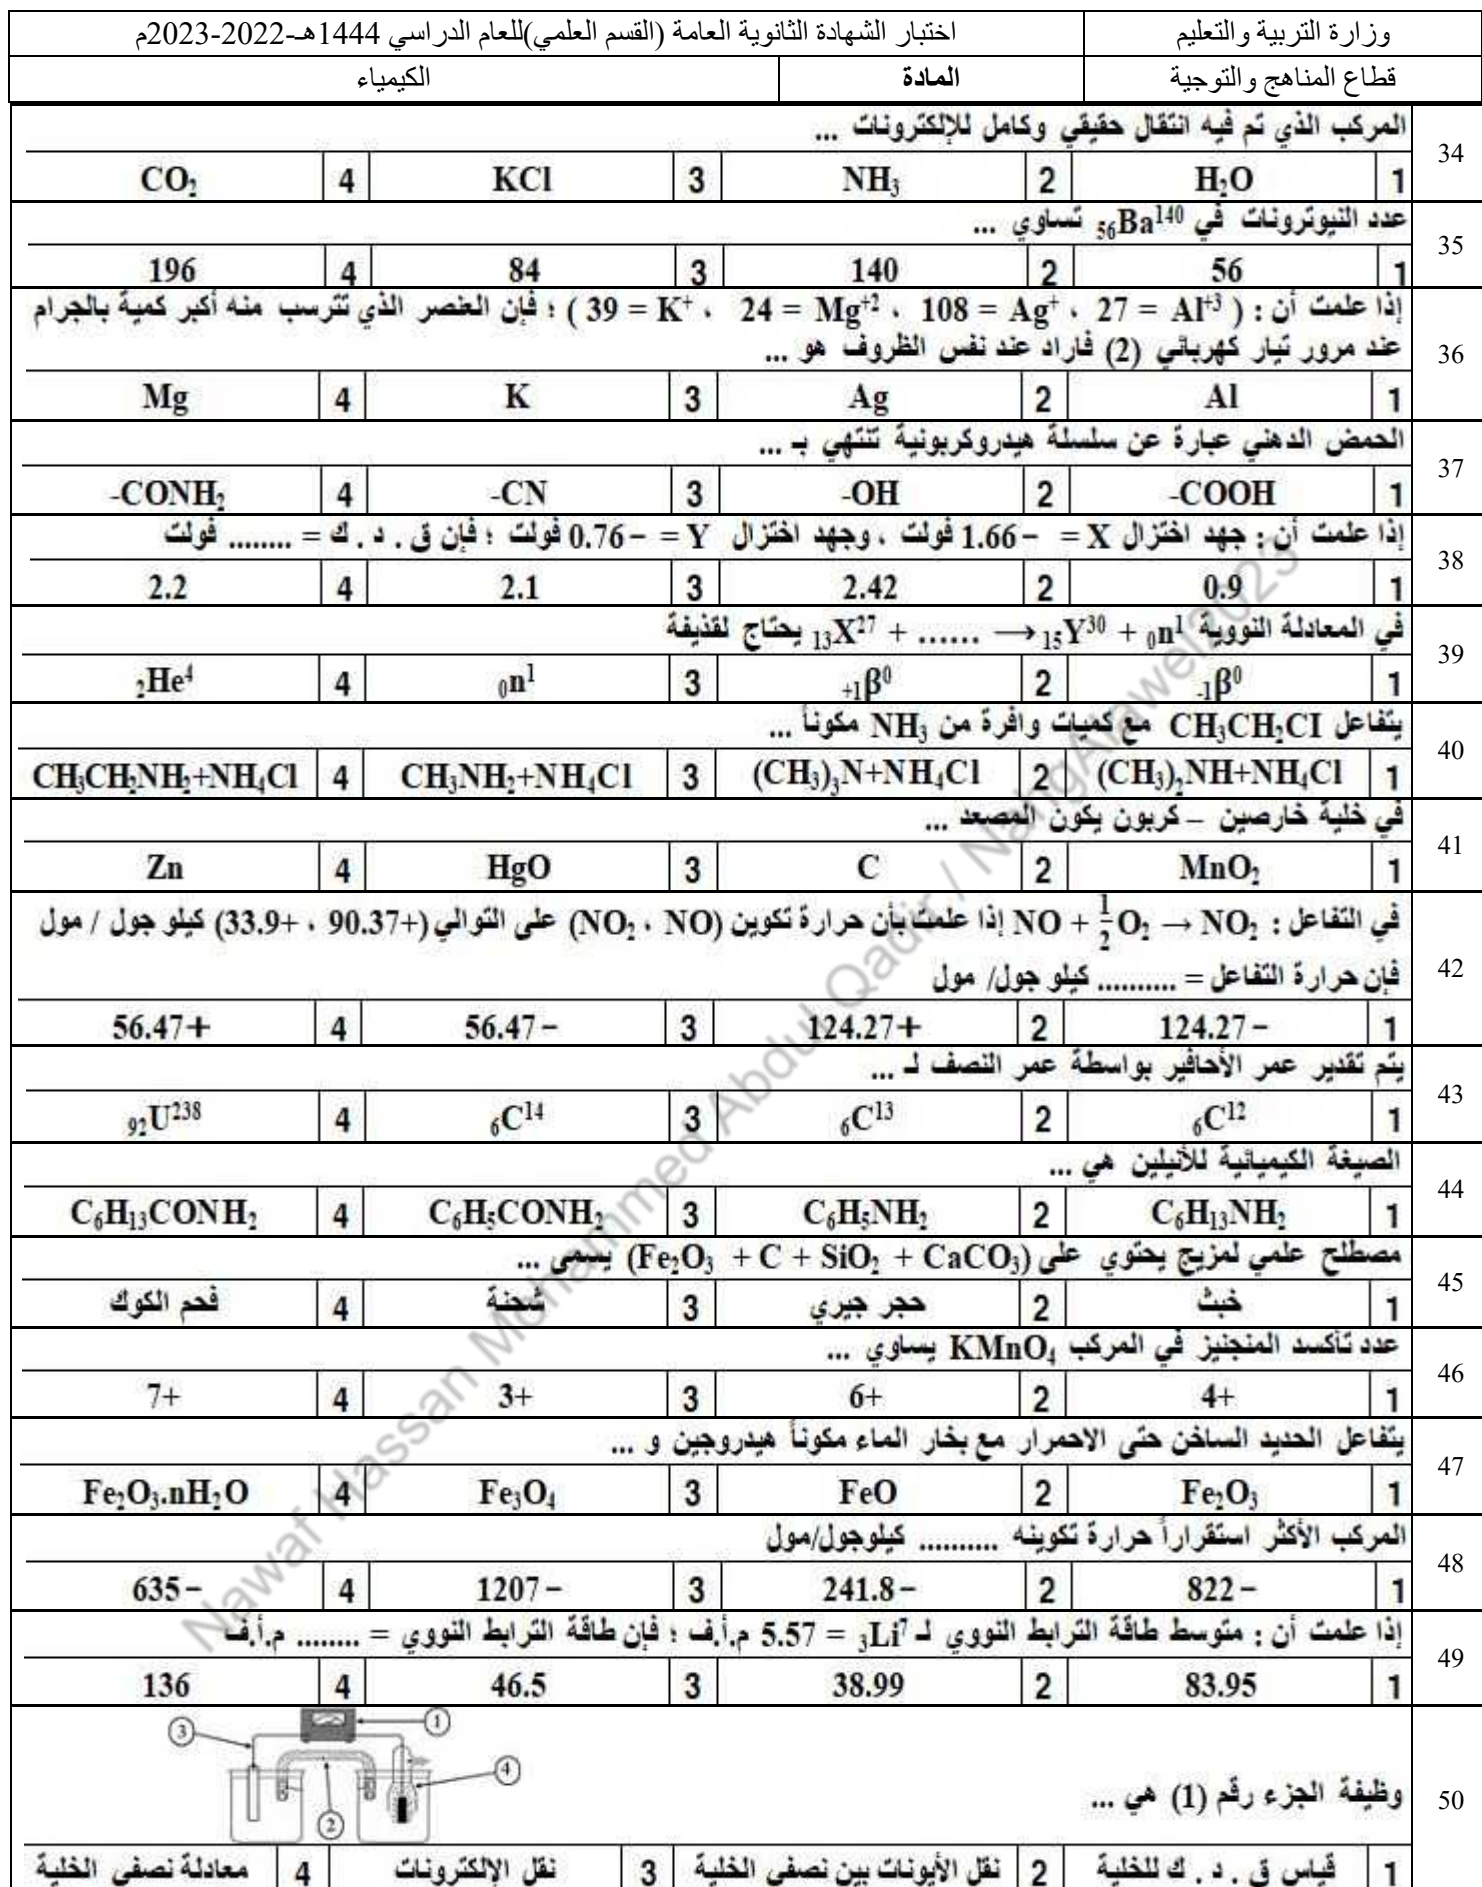 وزارة التربية والتعليم اختبار الشهادة الثانوية العامة (القسم العلمي)للعام الدراسي 1444هـ-2022-2023م
قطاع المناهج والتوجية المادة الكيمياء
34 المركب الذي تم فيه انتقال حقيقي وكامل للإلكترونات ...
1 H₂O 2 NH₃ 3 KCl 4 CO₂
35 عدد النيوترونات في ₅₆Ba¹⁴⁰ تساوي ...
1 56 2 140 3 84 4 196
36 إذا علمت أن : ( 27 = Al⁺³ ، 108 = Ag⁺ ، 24 = Mg⁺² ، 39 = K⁺ ) ؛ فإن العنصر الذي تترسب منه أكبر كمية بالجرام
عند مرور تيار كهربائي (2) فاراد عند نفس الظروف هو ...
1 Al 2 Ag 3 K 4 Mg
37 الحمض الدهني عبارة عن سلسلة هيدروكربونية تنتهي بـ ...
1 -COOH 2 -OH 3 -CN 4 -CONH₂
38 إذا علمت أن : جهد اختزال X = −1.66 فولت ، وجهد اختزال Y = −0.76 فولت ؛ فإن ق . د . ك = ........ فولت
1 0.9 2 2.42 3 2.1 4 2.2
39 في المعادلة النووية ₁₃X²⁷ + ...... ⟶ ₁₅Y³⁰ + ₀n¹ يحتاج لقذيفة
1 ₋₁β⁰ 2 ₊₁β⁰ 3 ₀n¹ 4 ₂He⁴
40 يتفاعل CH₃CH₂CI مع كميات وافرة من NH₃ مكوناً ...
1 (CH₃)₂NH+NH₄Cl 2 (CH₃)₃N+NH₄Cl 3 CH₃NH₂+NH₄Cl 4 CH₃CH₂NH₂+NH₄Cl
41 في خلية خارصين – كربون يكون المصعد ...
1 MnO₂ 2 C 3 HgO 4 Zn
42 في التفاعل : NO + ½O₂ → NO₂ إذا علمت بأن حرارة تكوين (NO₂ ، NO) على التوالي (+90.37 ، +33.9) كيلو جول / مول
فإن حرارة التفاعل = .......... كيلو جول/ مول
1 −124.27 2 +124.27 3 −56.47 4 +56.47
43 يتم تقدير عمر الأحافير بواسطة عمر النصف لـ ...
1 ₆C¹² 2 ₆C¹³ 3 ₆C¹⁴ 4 ₉₂U²³⁸
44 الصيغة الكيميائية للأنيلين هي ...
1 C₆H₁₃NH₂ 2 C₆H₅NH₂ 3 C₆H₅CONH₂ 4 C₆H₁₃CONH₂
45 مصطلح علمي لمزيج يحتوي على (Fe₂O₃ + C + SiO₂ + CaCO₃) يسمى ...
1 خبث 2 حجر جيري 3 شحنة 4 فحم الكوك
46 عدد تأكسد المنجنيز في المركب KMnO₄ يساوي ...
1 +4 2 +6 3 +3 4 +7
47 يتفاعل الحديد الساخن حتى الاحمرار مع بخار الماء مكوناً هيدروجين و ...
1 Fe₂O₃ 2 FeO 3 Fe₃O₄ 4 Fe₂O₃.nH₂O
48 المركب الأكثر استقراراً حرارة تكوينه .......... كيلوجول/مول
1 −822 2 −241.8 3 −1207 4 −635
49 إذا علمت أن : متوسط طاقة الترابط النووي لـ ₃Li⁷ = 5.57 م.أ.ف ؛ فإن طاقة الترابط النووي = ........ م.أ.ف
1 83.95 2 38.99 3 46.5 4 136
1
3
4
2
50 وظيفة الجزء رقم (1) هي ...
1 قياس ق . د . ك للخلية 2 نقل الأيونات بين نصفي الخلية 3 نقل الإلكترونات 4 معادلة نصفي الخلية
Nawaf Hassan Mohammed Abdul Qadir / NajgAlawel2023